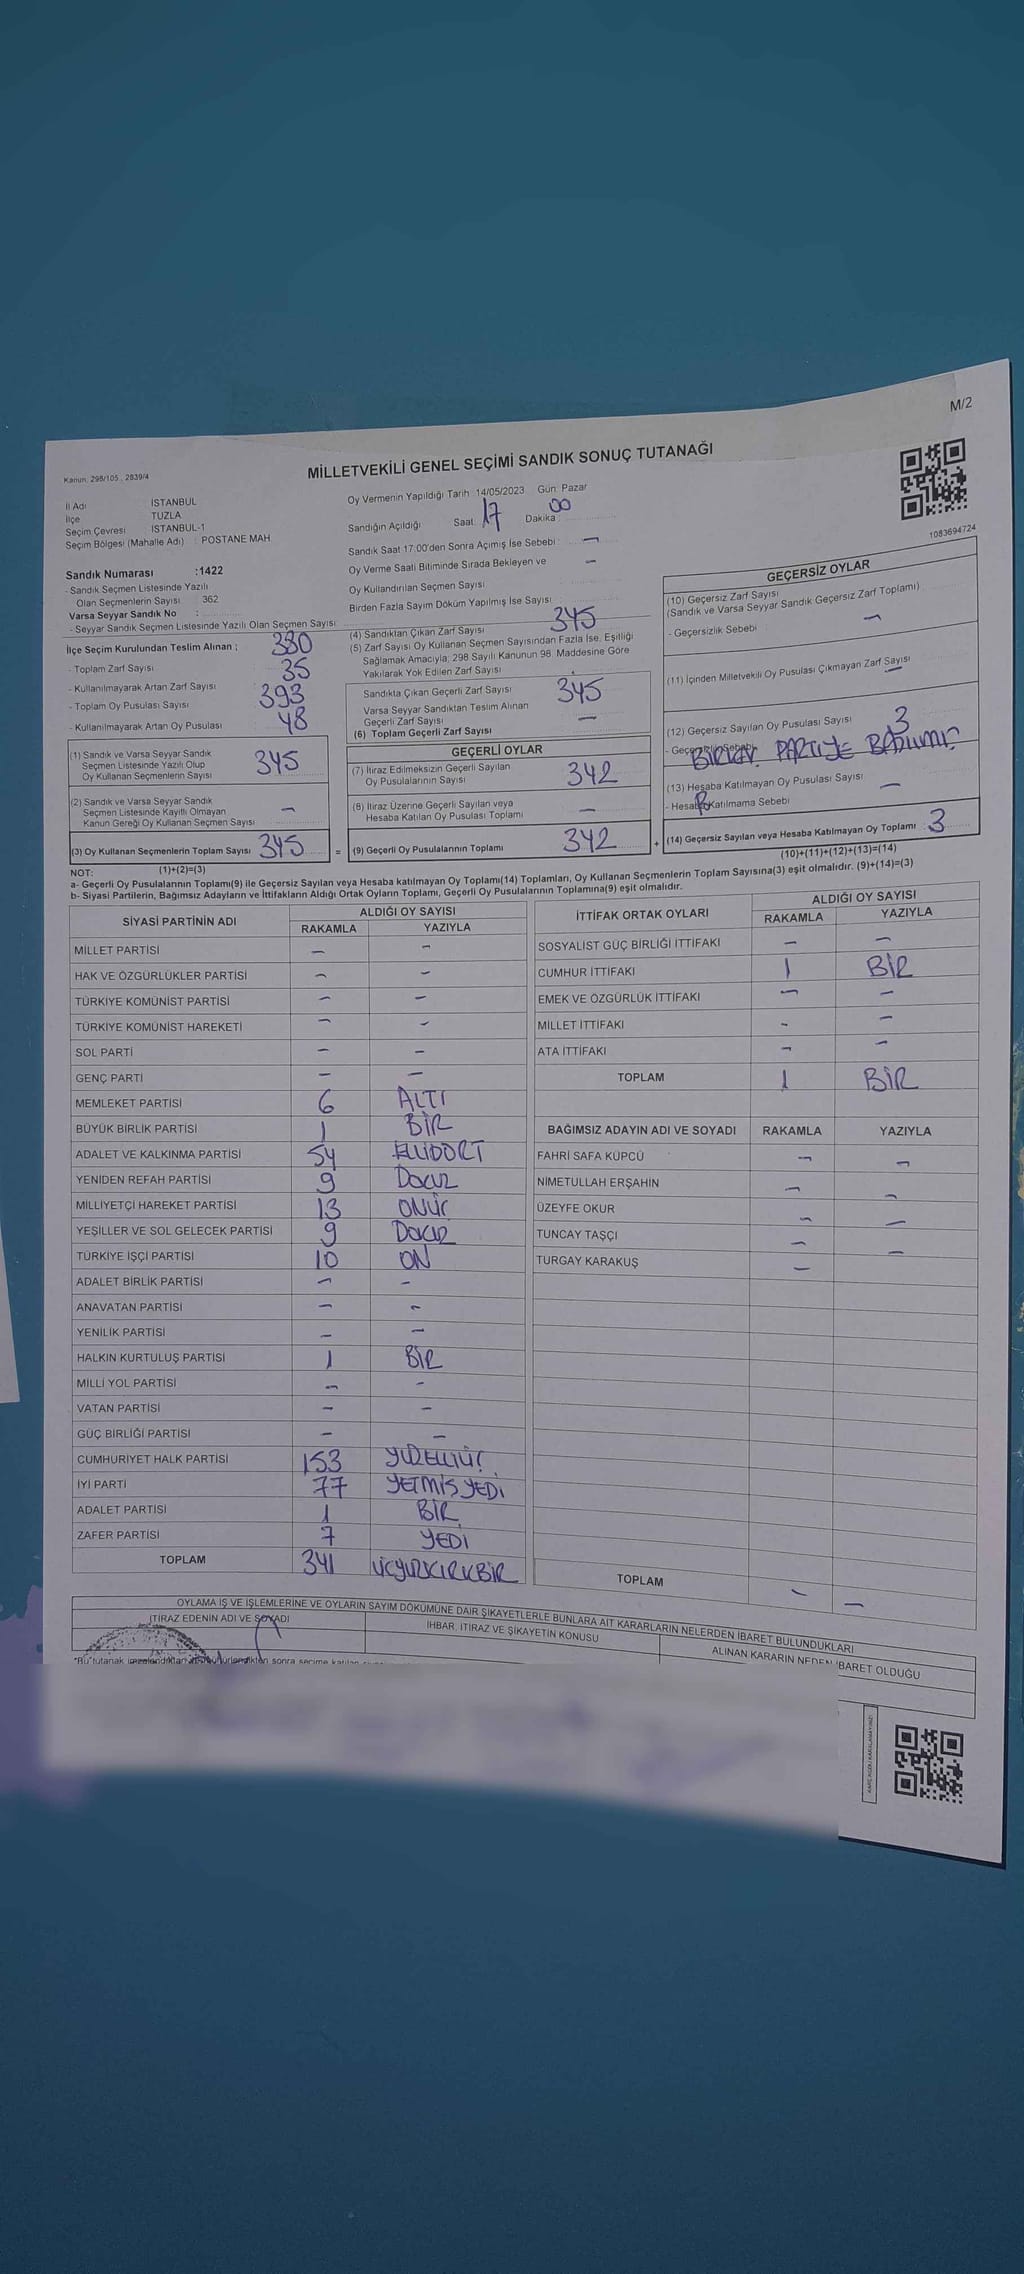 M/2
Kanun: 298/105 , 2839/4
MİLLETVEKİLİ GENEL SEÇİMİ SANDIK SONUÇ TUTANAĞI
İl Adı İSTANBUL
İlçe TUZLA
Seçim Çevresi İSTANBUL-1
Seçim Bölgesi (Mahalle Adı) : POSTANE MAH
Sandık Numarası :1422
- Sandık Seçmen Listesinde Yazılı
Olan Seçmenlerin Sayısı : 362
Varsa Seyyar Sandık No :
- Seyyar Sandık Seçmen Listesinde Yazılı Olan Seçmen Sayısı
Oy Vermenin Yapıldığı Tarih: 14/05/2023 Gün: Pazar
Sandığın Açıldığı Saat: 17 Dakika: 00
Sandık Saat 17:00'den Sonra Açımış İse Sebebi : -
Oy Verme Saati Bitiminde Sırada Bekleyen ve -
Oy Kullandırılan Seçmen Sayısı
Birden Fazla Sayım Döküm Yapılmış İse Sayısı
1083694724
İlçe Seçim Kurulundan Teslim Alınan ;
- Toplam Zarf Sayısı 380
- Kullanılmayarak Artan Zarf Sayısı 35
- Toplam Oy Pusulası Sayısı 393
- Kullanılmayarak Artan Oy Pusulası 48
(1) Sandık ve Varsa Seyyar Sandık
Seçmen Listesinde Yazılı Olup
Oy Kullanan Seçmenlerin Sayısı 345
(2) Sandık ve Varsa Seyyar Sandık
Seçmen Listesinde Kayıtlı Olmayan
Kanun Gereği Oy Kullanan Seçmen Sayısı -
(3) Oy Kullanan Seçmenlerin Toplam Sayısı 345 =
(1)+(2)=(3)
(4) Sandıktan Çıkan Zarf Sayısı 345
(5) Zarf Sayısı Oy Kullanan Seçmen Sayısından Fazla İse, Eşitliği
Sağlamak Amacıyla; 298 Sayılı Kanunun 98. Maddesine Göre
Yakılarak Yok Edilen Zarf Sayısı
Sandıkta Çıkan Geçerli Zarf Sayısı 345
Varsa Seyyar Sandıktan Teslim Alınan
Geçerli Zarf Sayısı -
(6) Toplam Geçerli Zarf Sayısı
GEÇERLİ OYLAR
(7) İtiraz Edilmeksizin Geçerli Sayılan
Oy Pusulalarının Sayısı 342
(8) İtiraz Üzerine Geçerli Sayılan veya
Hesaba Katılan Oy Pusulası Toplamı -
(9) Geçerli Oy Pusulalarının Toplamı 342 +
GEÇERSİZ OYLAR
(10) Geçersiz Zarf Sayısı
(Sandık ve Varsa Seyyar Sandık Geçersiz Zarf Toplamı) -
- Geçersizlik Sebebi
(11) İçinden Milletvekili Oy Pusulası Çıkmayan Zarf Sayısı -
(12) Geçersiz Sayılan Oy Pusulası Sayısı 3
- Geçersizlik Sebebi PARTİYE
(13) Hesaba Katılmayan Oy Pusulası Sayısı -
- Hesaba Katılmama Sebebi
(14) Geçersiz Sayılan veya Hesaba Katılmayan Oy Toplamı 3
(10)+(11)+(12)+(13)=(14)
NOT:
a- Geçerli Oy Pusulalarının Toplamı(9) ile Geçersiz Sayılan veya Hesaba katılmayan Oy Toplamı(14) Toplamları, Oy Kullanan Seçmenlerin Toplam Sayısına(3) eşit olmalıdır. (9)+(14)=(3)
b- Siyasi Partilerin, Bağımsız Adayların ve İttifakların Aldığı Ortak Oyların Toplamı, Geçerli Oy Pusulalarının Toplamına(9) eşit olmalıdır.
SİYASİ PARTİNİN ADI ALDIĞI OY SAYISI
RAKAMLA YAZIYLA
MİLLET PARTİSİ - -
HAK VE ÖZGÜRLÜKLER PARTİSİ - -
TÜRKİYE KOMÜNİST PARTİSİ - -
TÜRKİYE KOMÜNİST HAREKETİ - -
SOL PARTİ - -
GENÇ PARTİ - -
MEMLEKET PARTİSİ 6 ALTI
BÜYÜK BİRLİK PARTİSİ 1 BİR
ADALET VE KALKINMA PARTİSİ 54 ELLİDÖRT
YENİDEN REFAH PARTİSİ 9 DOKUZ
MİLLİYETÇİ HAREKET PARTİSİ 13 ONÜÇ
YEŞİLLER VE SOL GELECEK PARTİSİ 9 DOKUZ
TÜRKİYE İŞÇİ PARTİSİ 10 ON
ADALET BİRLİK PARTİSİ - -
ANAVATAN PARTİSİ - -
YENİLİK PARTİSİ - -
HALKIN KURTULUŞ PARTİSİ 1 BİR
MİLLİ YOL PARTİSİ - -
VATAN PARTİSİ - -
GÜÇ BİRLİĞİ PARTİSİ - -
CUMHURİYET HALK PARTİSİ 153 YÜZELLİÜÇ
İYİ PARTİ 77 YETMİŞYEDİ
ADALET PARTİSİ 1 BİR
ZAFER PARTİSİ 7 YEDİ
TOPLAM 341 ÜÇYÜZKIRKBİR
İTTİFAK ORTAK OYLARI ALDIĞI OY SAYISI
RAKAMLA YAZIYLA
SOSYALİST GÜÇ BİRLİĞİ İTTİFAKI - -
CUMHUR İTTİFAKI 1 BİR
EMEK VE ÖZGÜRLÜK İTTİFAKI - -
MİLLET İTTİFAKI - -
ATA İTTİFAKI - -
TOPLAM 1 BİR
BAĞIMSIZ ADAYIN ADI VE SOYADI RAKAMLA YAZIYLA
FAHRİ SAFA KÜPCÜ - -
NİMETULLAH ERŞAHİN - -
ÜZEYFE OKUR - -
TUNCAY TAŞÇI - -
TURGAY KARAKUŞ -
TOPLAM - -
OYLAMA İŞ VE İŞLEMLERİNE VE OYLARIN SAYIM DÖKÜMÜNE DAİR ŞİKAYETLERLE BUNLARA AİT KARARLARIN NELERDEN İBARET BULUNDUKLARI
İTİRAZ EDENİN ADI VE SOYADI İHBAR, İTİRAZ VE ŞİKAYETİN KONUSU ALINAN KARARIN NEDEN İBARET OLDUĞU
"Bu tutanak imzalandıktan sonra seçime katılan